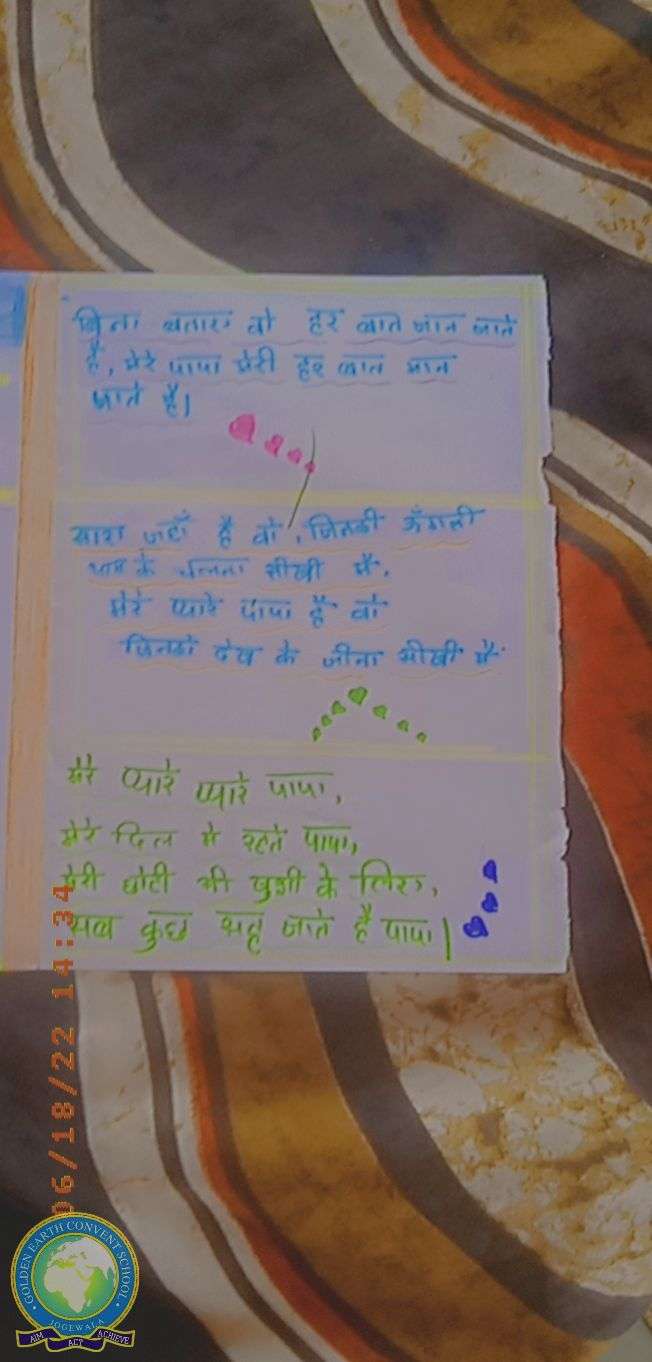 बिना बताए वो हर बात जान जाते
है, मेरे पापा मेरी हर बात मान
जाते है।
सारा जहाँ है वो, जिनकी उँगली
थाम के चलना सीखी मैं,
मेरे प्यारे पापा है वो
जिनको देख के जीना सीखी मैं
मेरे प्यारे प्यारे पापा,
मेरे दिल मे रहते पापा,
मेरी छोटी सी खुशी के लिए,
सब कुछ सह जाते है पापा|
06/18/22 14:34
GOLDEN EARTH CONVENT SCHOOL
JOGEWALA
AIM ACT ACHIEVE